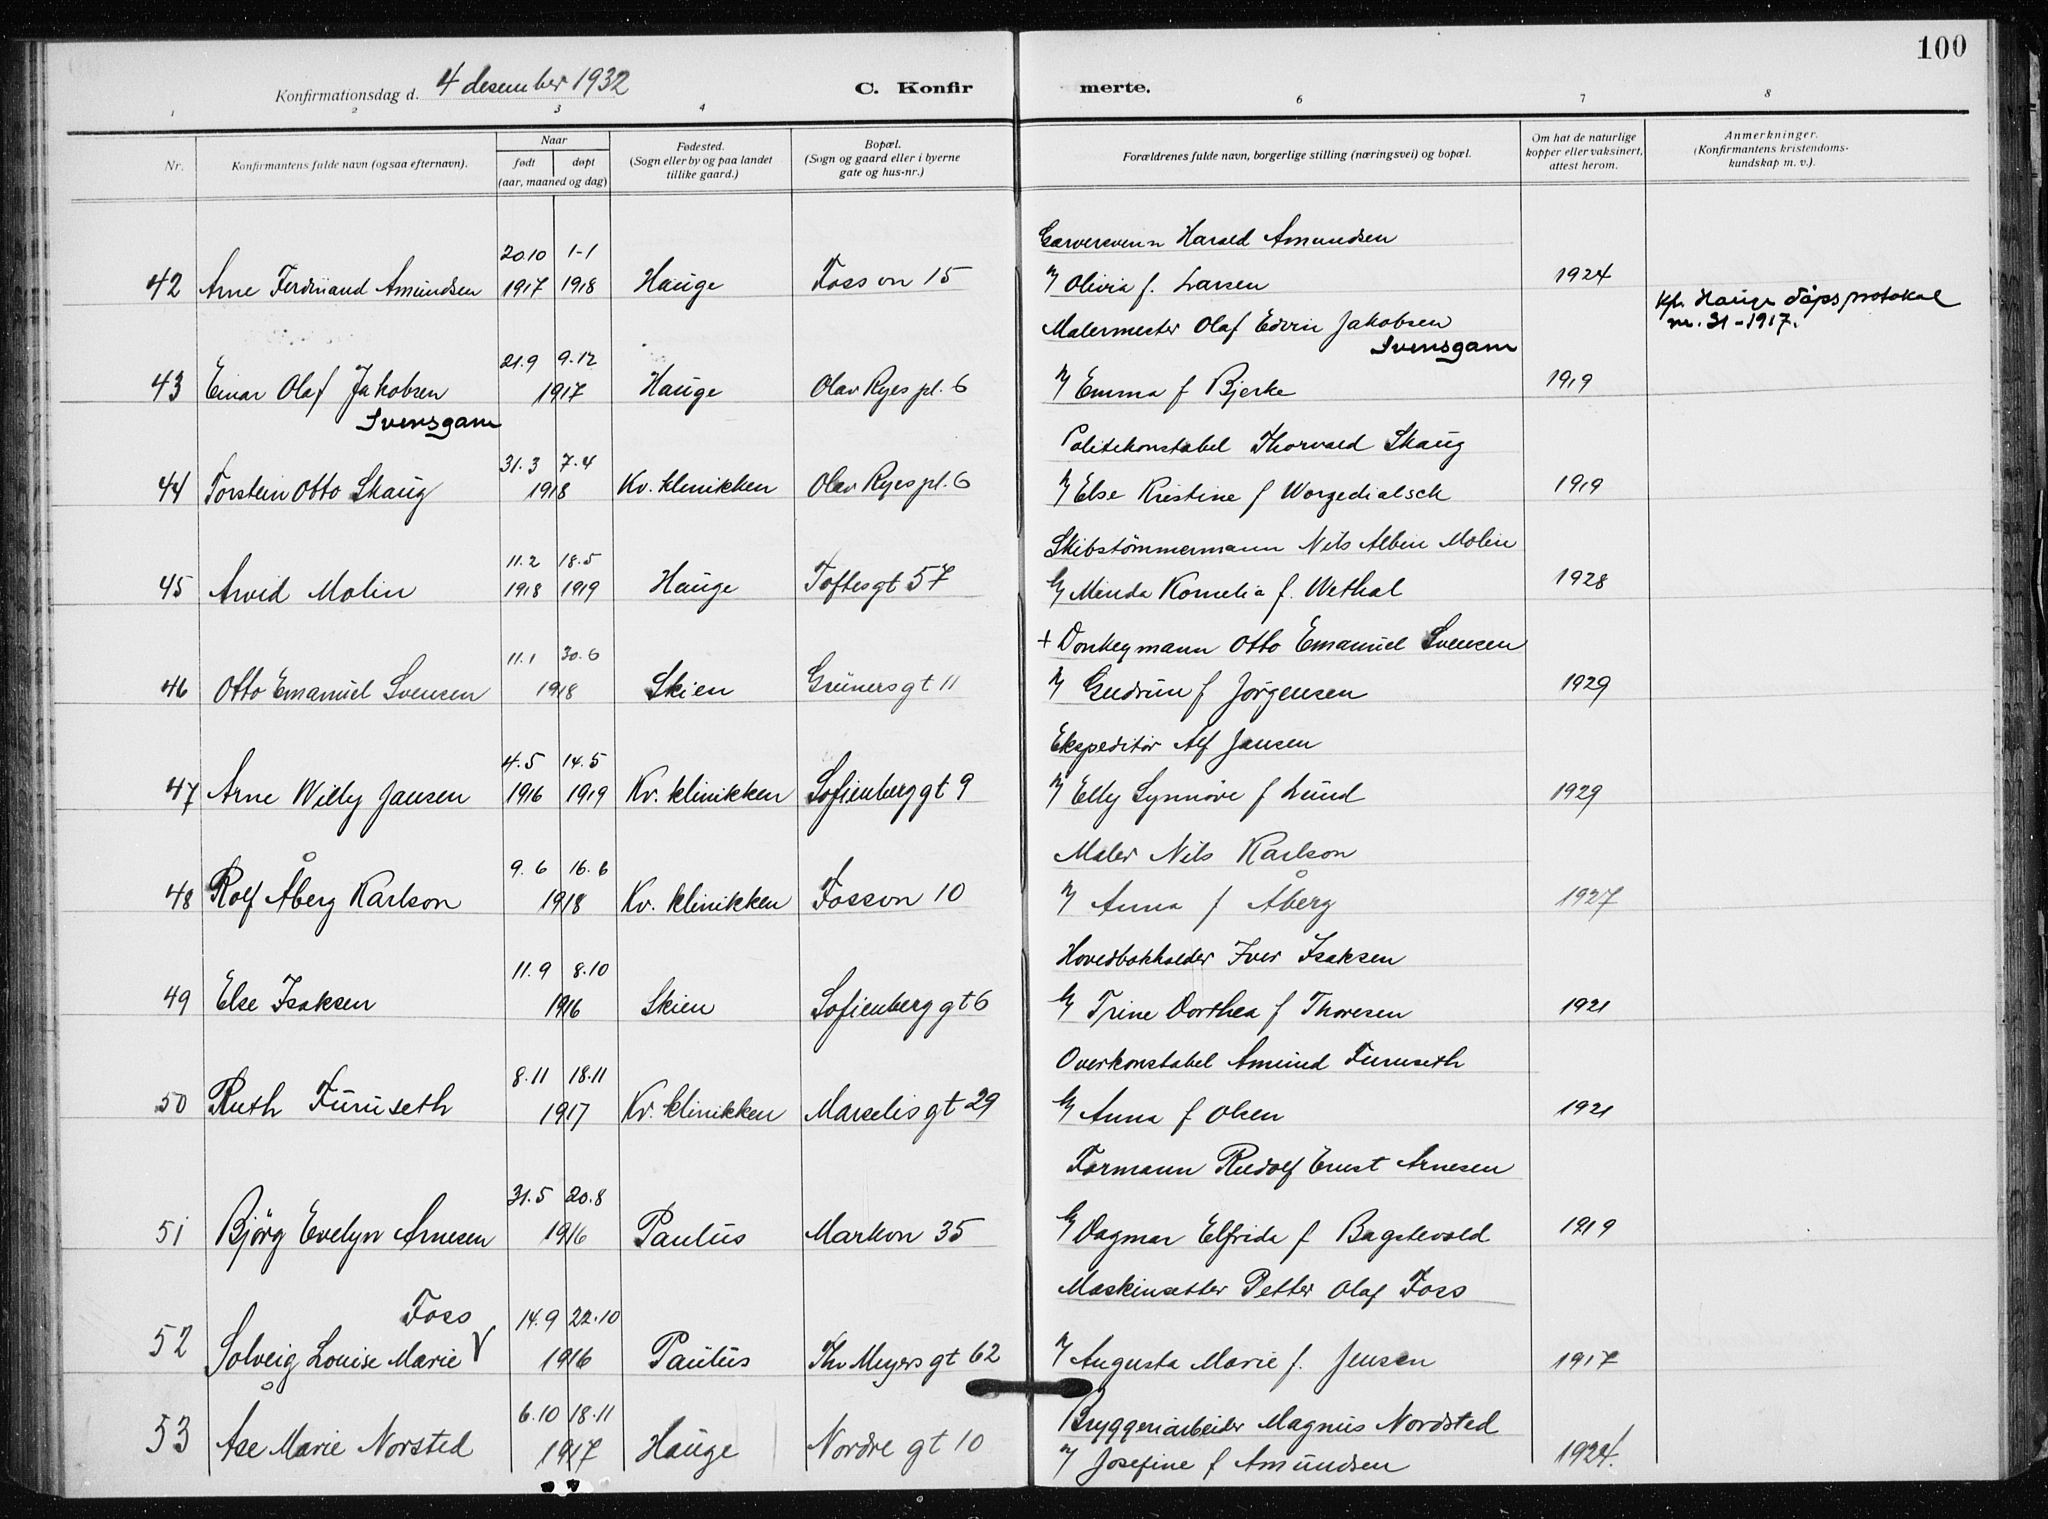 100
Konfirmationsdag d. 4 desember 1932
C. Konfirmerte.
1 2 3 4 6 7 8
Nr.
Konfirmantens fulde navn (ogsaa efternavn).
Naar
født døpt
(aar, maaned og dag)
Fødested.
(Sogn eller by og paa landet
tillike gaard.)
Bopæl.
(Sogn og gaard eller i byerne
gate og hus-nr.)
Forældrenes fulde navn, borgerlige stilling (næringsvei) og bopæl.
Om hat de naturlige
kopper eller vaksinert,
attest herom.
Anmerkninger.
(Konfirmantens kristendoms-
kundskap m. v.).
20.10 1-1 Garversvenn Harald Amundsen
42 Arne Ferdinand Amundsen 1917 1918 Hauge Foss vn 15 Olivia f. Larsen 1924
Hauge dåpsprotokol
nr. 31-1917.
21.9 9.12 Malermester Olaf Edvin Jakobsen
Svensgam
43 Einar Olaf Jakobsen 1917 Hauge Olav Ryes pl. 6 Emma f Bjerke 1919
Svensgam
31.3 7.4 Politikonstabel Thorvald Skaug
44 Torstein Otto Skaug 1918 Kv. klinikken Olav Ryes pl. 6 Else Kristine f 1919
11.2 18.5 Skibstömmermann Nils Albin Molin
45 Arvid Molin 1918 1919 Hauge Toftesgt 57 Minda Kornelia f. Wethal 1928
11.1 30.6 + Donkeymann Otto Emanuel Svensen
46 Otto Emanuel Svensen 1918 Skien Grünersgt 11 Gudrun f Jörgensen 1929
4.5 14.5 Ekspeditör Alf Jansen
47 Arne Willy Jansen 1916 1919 Kv. klinikken Sofienberggt 9 Elly Synnöve f Lund 1929
9.6 16.6 Maler Nils Karlson
48 Rolf Åberg Karlson 1918 Kv. klinikken Fossvn 10 Anna f Åberg 1927
11.9 8.10 Hovedbokholder Iver Isaksen
49 Else Isaksen 1916 Skien Sofienberggt 6 Trine Dorthea f Thoresen 1921
8.11 18.11 Overkonstabel Amund Furuseth
50 Ruth Furuseth 1917 Kv. klinikken Marselisgt 29 Anna f Olsen 1921
31.5 20.8 Formann Rudolf Ernst Arnesen
51 Björg Evelyn Arnesen 1916 Paulus Markvn 35 Dagmar Elfrida f Bagstevold 1919
Foss 14.9 22.10 Maskinsetter Petter Olaf Foss
52 Solveig Louise Marie 1916 Paulus Thv Meyers gt 62 Augusta Marie f. Jensen 1917
6.10 18.11 Bryggeriarbeider Magnus Nordsted
53 Åse Marie Norsted 1917 Hauge Nordre gt 10 Josefine f Amundsen 1924.